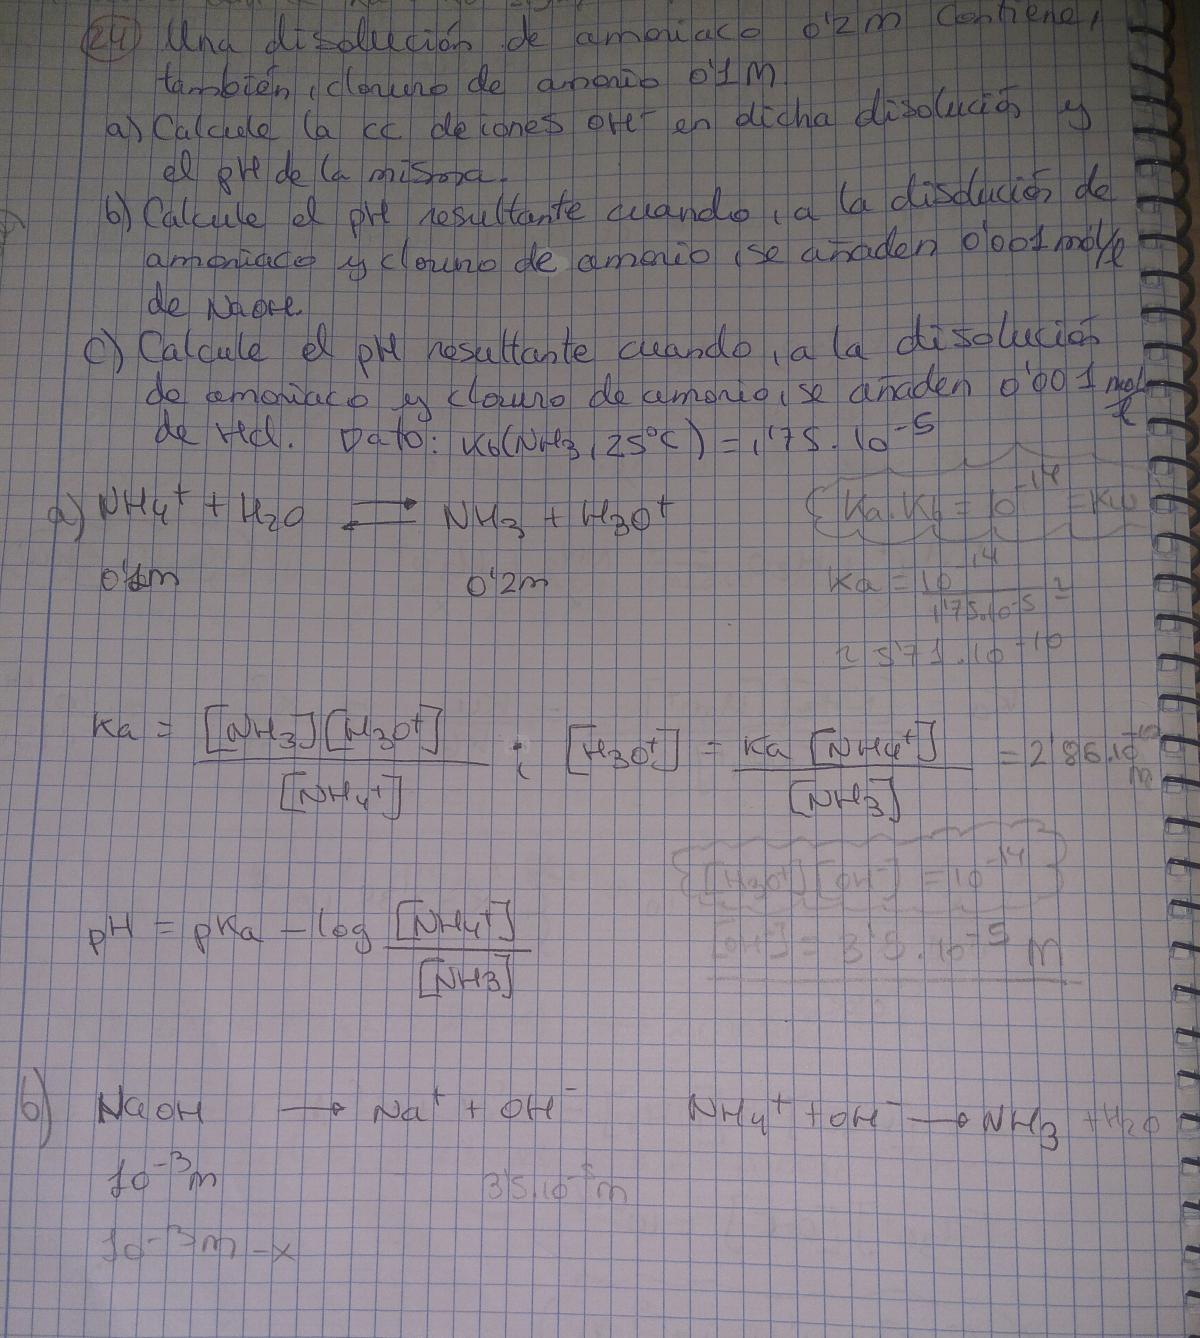 24) Una disolución de amoniaco 0'2M contiene,
también, cloruro de amonio 0'1M
a) Calcule la cc de iones OH⁻ en dicha disolución y
el pH de la misma.
b) Calcule el pH resultante cuando, a la disolución de
amoniaco y cloruro de amonio, se añaden 0'001 mol/l
de NaOH.
c) Calcule el pH resultante cuando, a la disolución
de amoniaco y cloruro de amonio, se añaden 0'001 mol/l
de HCl. Dato: Kb(NH3, 25ºC) = 1'75·10⁻⁵
a) NH4⁺ + H2O ⇌ NH3 + H3O⁺ {Ka·Kb = 10⁻¹⁴ = Kw
0'1M 0'2M Ka = 10⁻¹⁴ / 1'75·10⁻⁵ =
= 5'71·10⁻¹⁰
Ka = [NH3][H3O⁺] / [NH4⁺] ; [H3O⁺] = Ka [NH4⁺] / [NH3] = 2'86·10⁻¹⁰ M
{[H3O⁺][OH⁻] = 10⁻¹⁴}
pH = pKa - log [NH4⁺] / [NH3] [OH⁻] = 3'5·10⁻⁵ M
b) NaOH → Na⁺ + OH⁻ NH4⁺ + OH⁻ → NH3 + H2O
10⁻³M 3'5·10⁻⁵M
10⁻³M - x